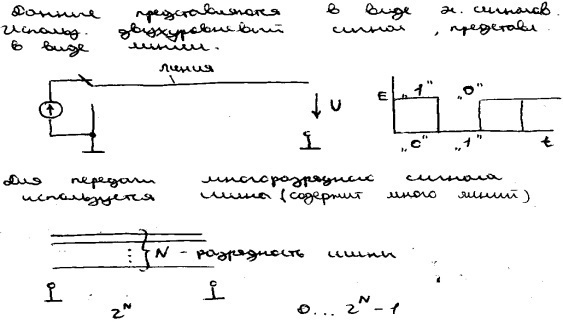 Данные представляются в виде эл. сигналов.
Использ. двухуровневый сигнал, представл.
в виде линии.
линия
U
E
„1" „0"
„0" „1" t
Для передачи многоразрядного сигнала
используется шина (содержит много линий)
N - разрядность шины
2^N 0... 2^N-1